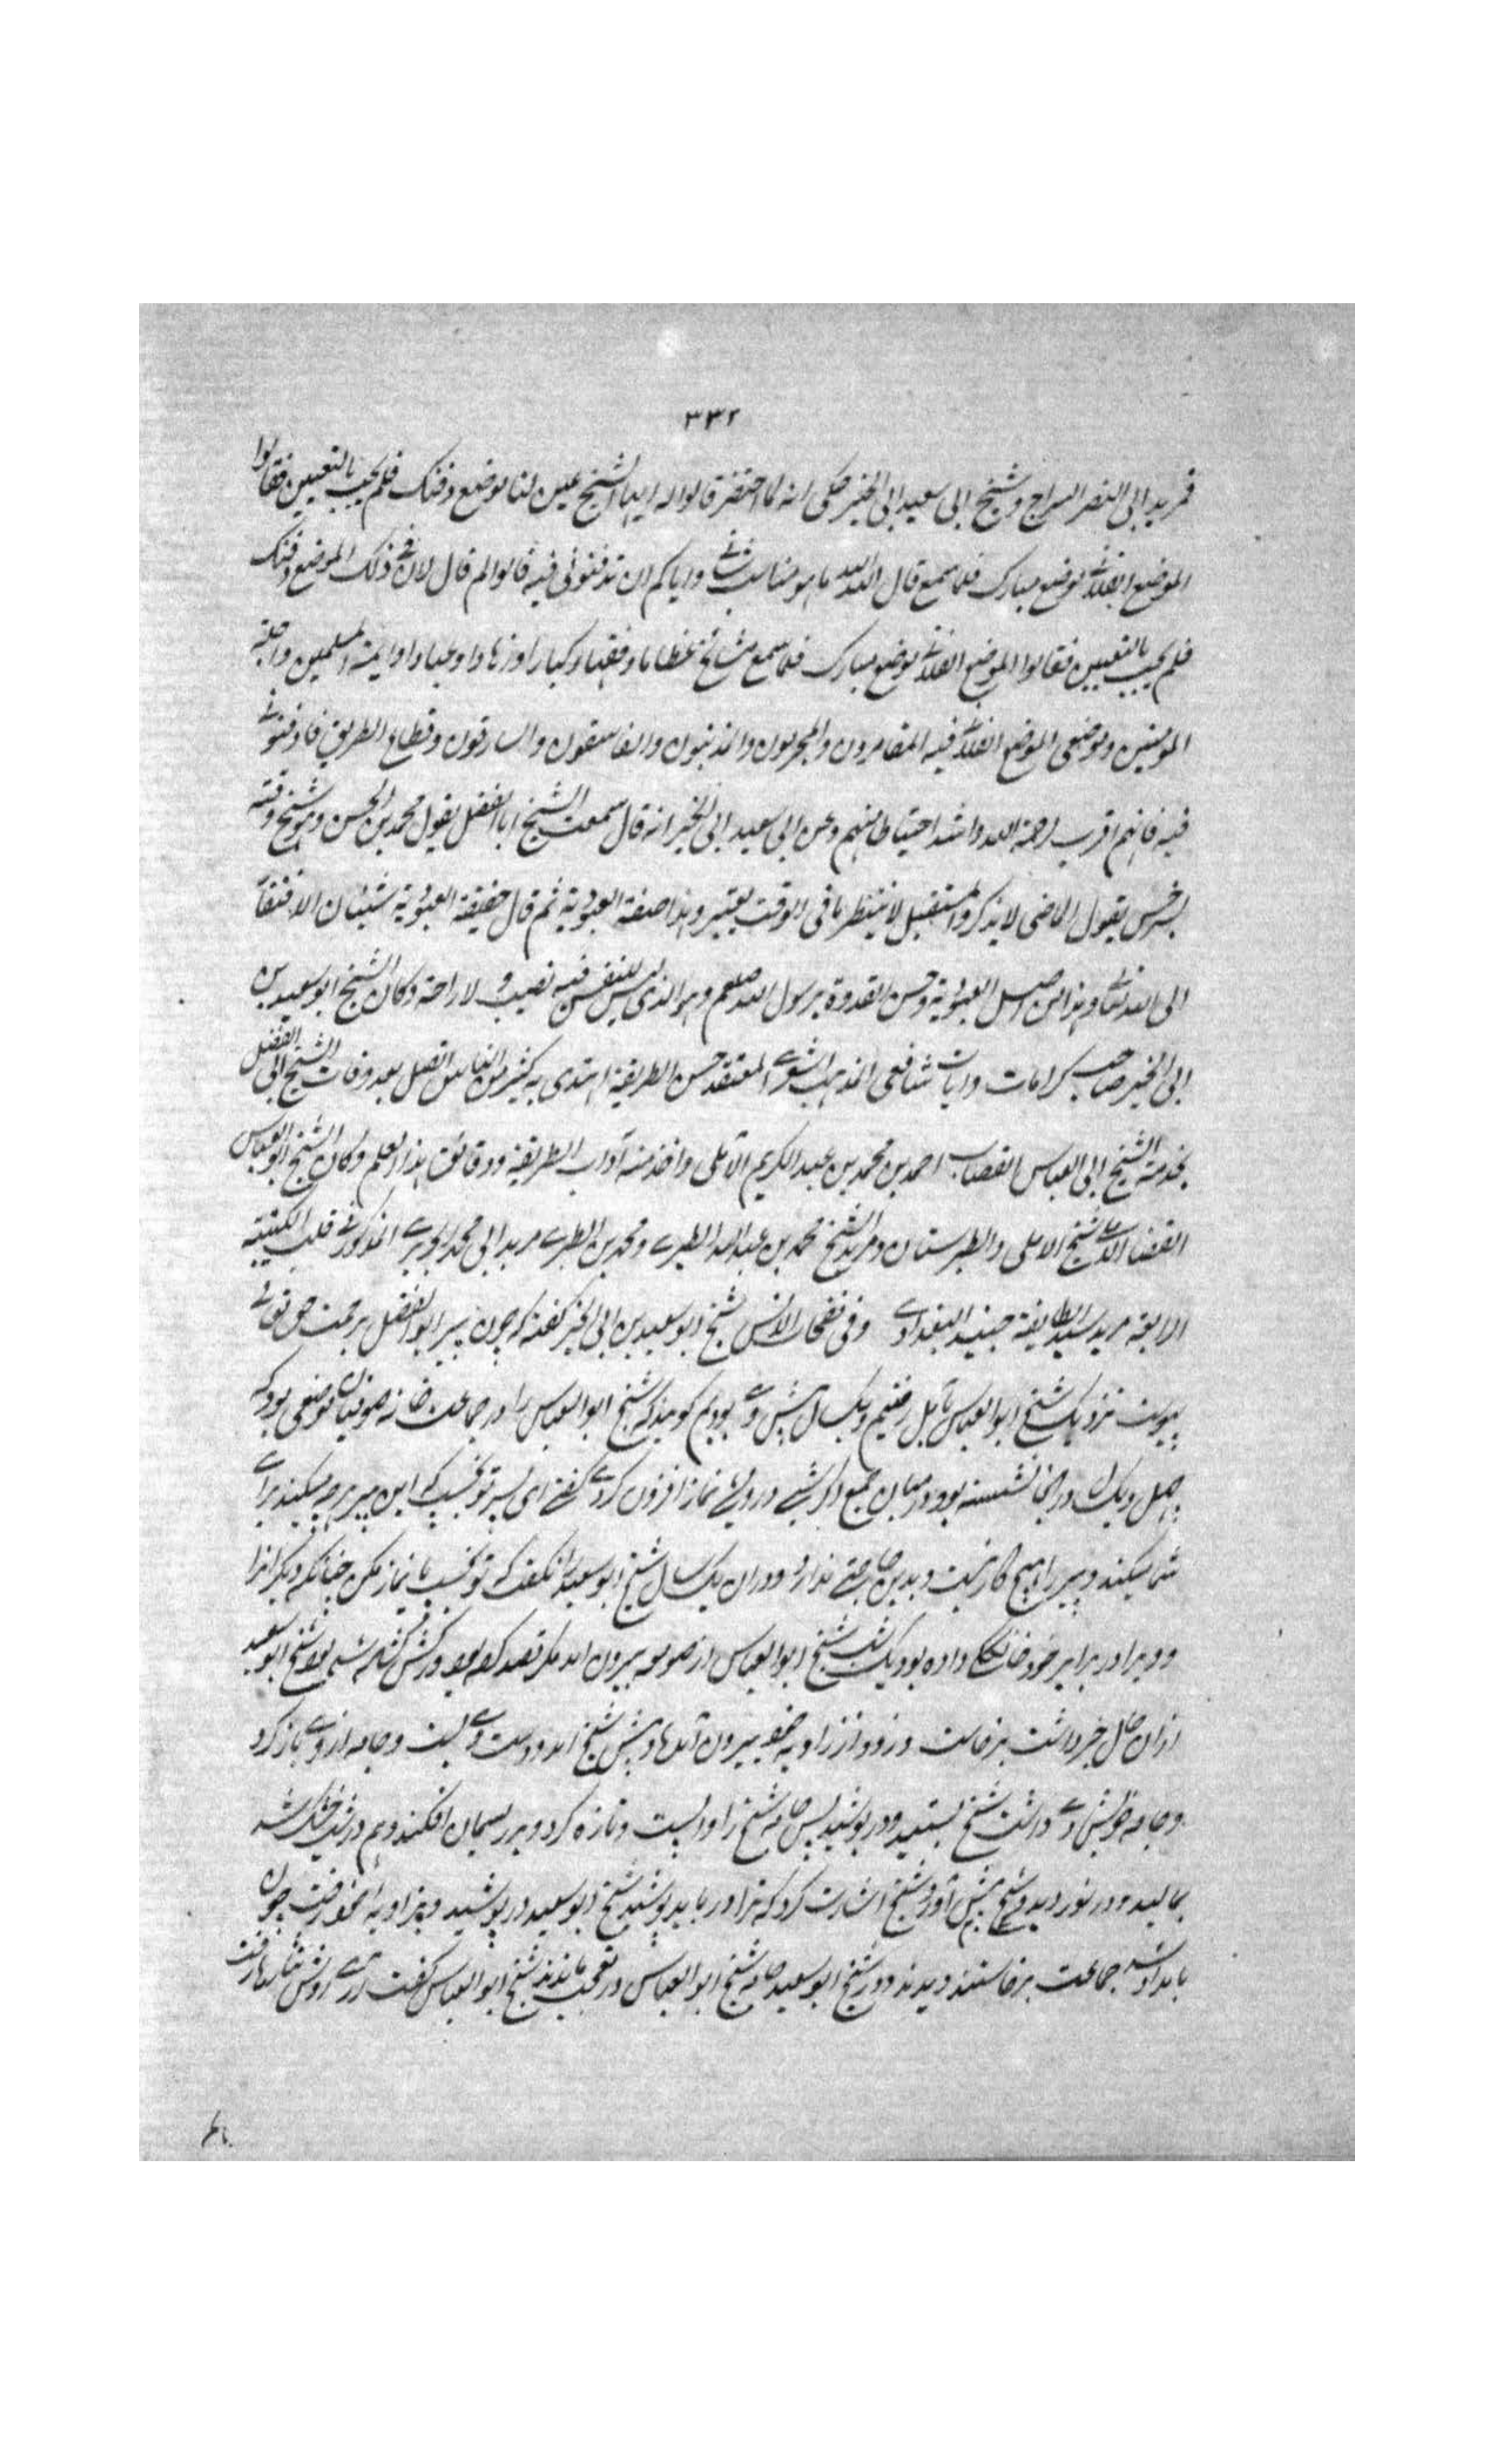 ٣٣٢
فمرید ابی النصر السراج و شیخ ابی سعید ابی الخیر حکی انه لما احتضر قالوا له ایها الشیخ عین لنا موضع دفنک فلم یجب بالتعیین فقالوا
الموضع الفلانی موضع مبارک فلما سمع قال الله الله ما هو مناسب شانی وایاکم ان تدفنونی فیه قالوا لم قال لان فی ذلک الموضع دفنک
فلم یجب بالتعیین فقالوا الموضع الفلانی موضع مبارک فلما سمع مشائخ عظاما وفقها وکبارا وزهادا وعبادا وایمة المسلمین واجلة
المومنین وموضعی الموضع الفلانی فیه المقامرون والمجرمون والمذنبون والفاسقون والسارقون وقطاع الطریق فادفنونی
فیه فانهم اقرب رحمة الله واشد احتیاطا منهم وعن ابی سعید ابی الخیر انه قال سمعت الشیخ ابا الفضل یقول محمد بن الحسن وهو شیخ وقته
بسرخس یقول الماضی لا یذکر والمستقبل لا ینتظر ما فی الوقت یعتبر وهذا صفة العبودیة ثم قال حقیقة العبودیة شیئان الافتقار
الی الله تعالی وهذا من اصل العبودیة وحسن القدوة برسول الله صلعم وهو الذی لیس للنفس فیه نصیب ولا راحة وکان الشیخ ابو سعید بن
ابی الخیر صاحب کرامات وایات شافعی المذهب اشعری المعتقد حسن الطریقة اهتدی به کثیر من الناس اتصل بعد وفات الشیخ ابی الفضل
بخدمة الشیخ ابی العباس القصاب احمد بن محمد بن عبد الکریم الآملی واخذ منه آداب الطریقة ودقائق هذا العلم وکان الشیخ ابو العباس
القصاب الآملی شیخ الاملی والطبرستان ومرید الشیخ محمد بن عبد الله الطبری ومحمد بن الطبری مرید ابی محمد الجریری المذکور فی قلب الکتیبة
الرابعة مرید سید الطایفة جنید البغدادی وفی نفحات الانس شیخ ابو سعید بن ابی الخیر گفته که چون پیر ابو الفضل برحمت حق تعالی
پیوست نزدیک شیخ ابو العباس بآمل رفتیم ویک سال پیش وی بودیم گویند که شیخ ابو العباس را در جماعت خانه صوفیان موضعی بود که
چهل ویک سال در انجا نشسته بود در میان جمع اگر شبی درویشی نماز افزون کردی گفتی ای پسر تو بخسب که این پیر هر چه میکند برای
شما میکند وپیر را هیچ کار نیست وبدین حاجتی ندارد ودران یکسال شیخ ابو سعید را نگفت که تو بخسب یا نماز مکن چنانکه دیگرانرا
وویرا در برابر خود خانگکی داده بود یک شب شیخ ابو العباس از صومعه بیرون آمد مگر فصد کرده بود ورگش گشاده شده بود شیخ ابو سعید
ازان حال خبر داشت برخاست وزود از زاویه خود بیرون آمد وپیش شیخ آمد ودست وی بست وجامه از وی باز کرد
وجامه خویش وی داشت شیخ بستد ودر پوشید پس جامه شیخ را وا شست ونمازی کرد وبر ریسمان افکند وهم در شب خشک شد
بمالید ودر نوردید وشیخ پیش آورد شیخ اشارت کرد که ترا در باید پوشید شیخ ابو سعید در پوشید وبزاویه خود رفت چون
بامداد شد جماعت برخاستند دیدند در بر شیخ ابو سعید جامه شیخ ابو العباس در تعجب ماندند شیخ ابو العباس گفت آری دوش نثارها رفت